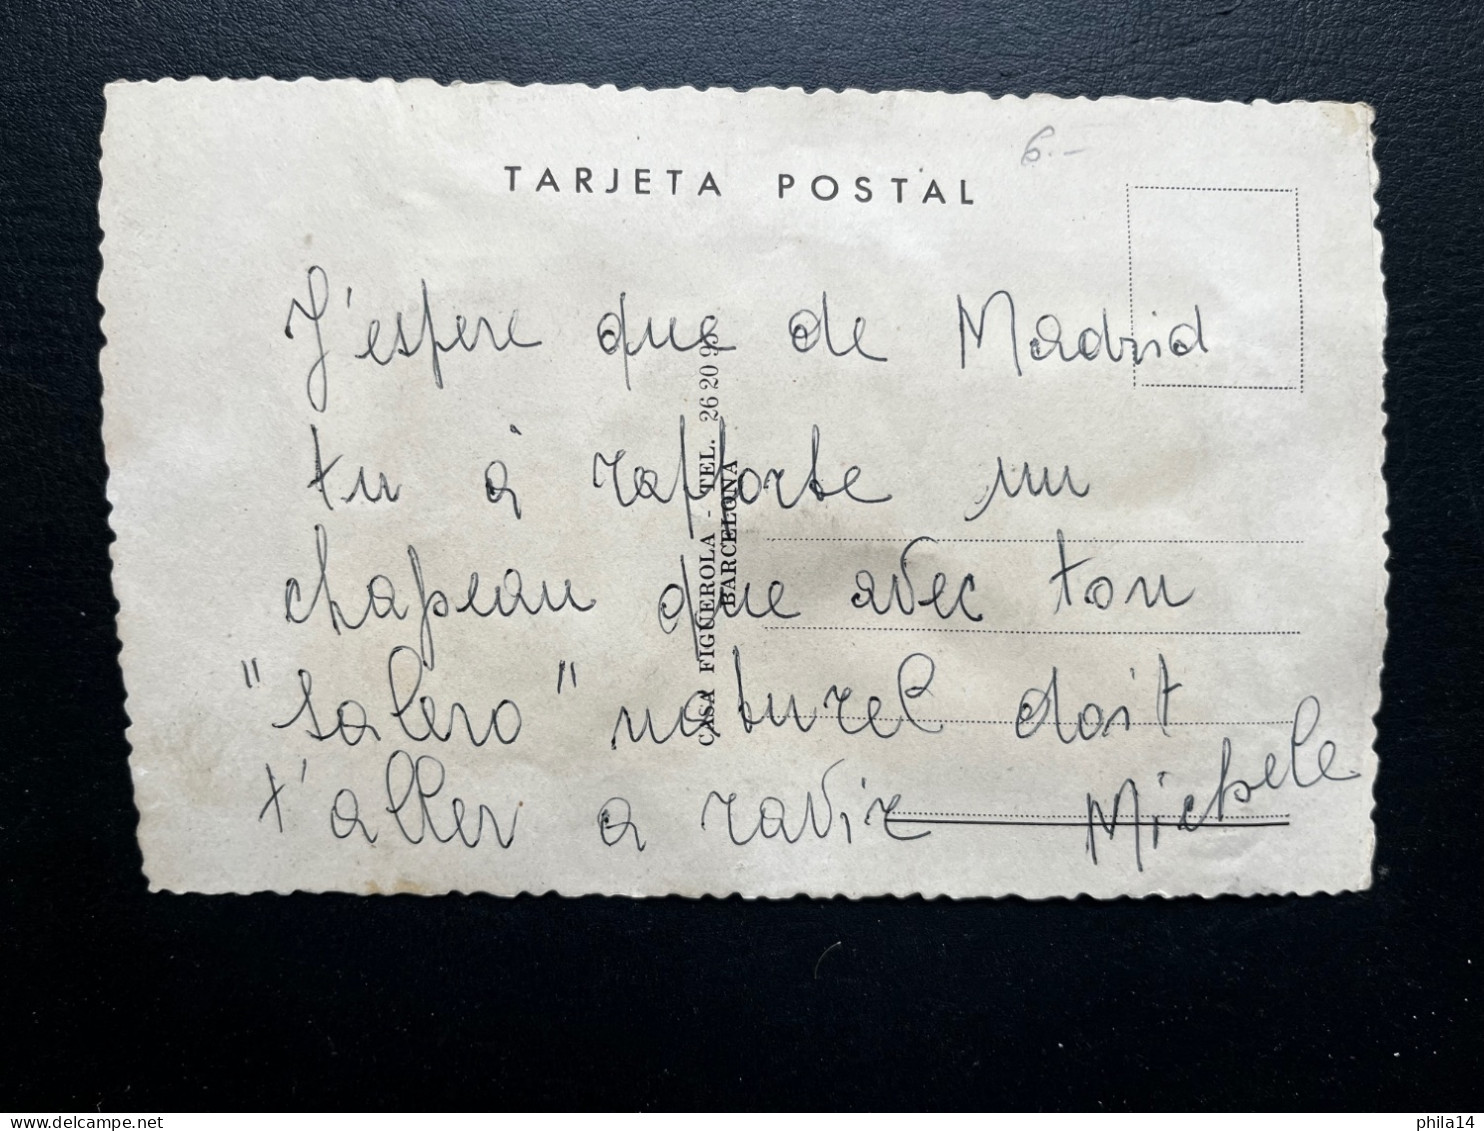 6.-
TARJETA POSTAL
J'espere que de Madrid
tu à rapporte un
chapeau que avec ton
"salero" naturel doit
t'aller a ravir Michele
CASA FIGUEROLA - TEL. 26 20 95
BARCELONA
phila14